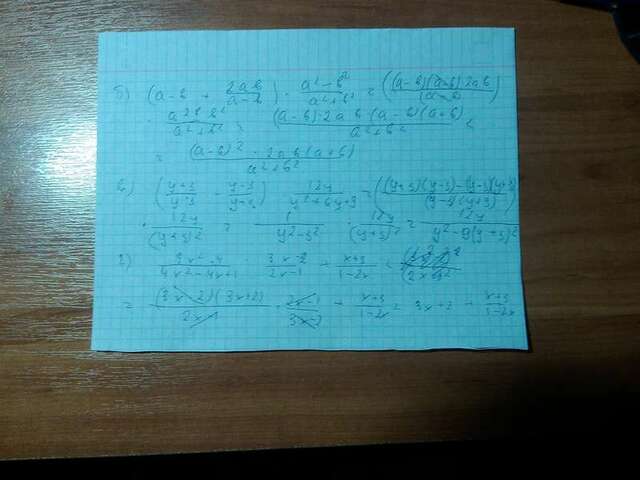 б) (a-b + 2ab/(a-b)) · (a²-b²)/(a²+b²) = (((a-b)(a-b)·2ab)/(a-b))
· (a²-b²)/(a²+b²) = ((a-b)·2ab·(a-b)(a+b))/(a²+b²) =
= ((a-b)²·2ab(a+b))/(a²+b²)
в) ((y+3)/(y-3) - (y-3)/(y+3)) 12y/(y²+6y+9) = (((y+3)(y-3)-(y-3)(y+3))/((y-3)(y+3)))
· 12y/(y+3)² = 1/(y²-3²) · 12y/(y+3)² = 12y/(y²-9(y+3)²)
г) (3x²-4)/(4x²-4x+1) : (3x-2)/(2x-1) + (x+3)/(1-2x) =
= ((3x-2)(3x+2))/(2x-1) · (2x-1)/(3x-2) + (x+3)/(1-2x) = 3x+2 + (x+3)/(1-2x)